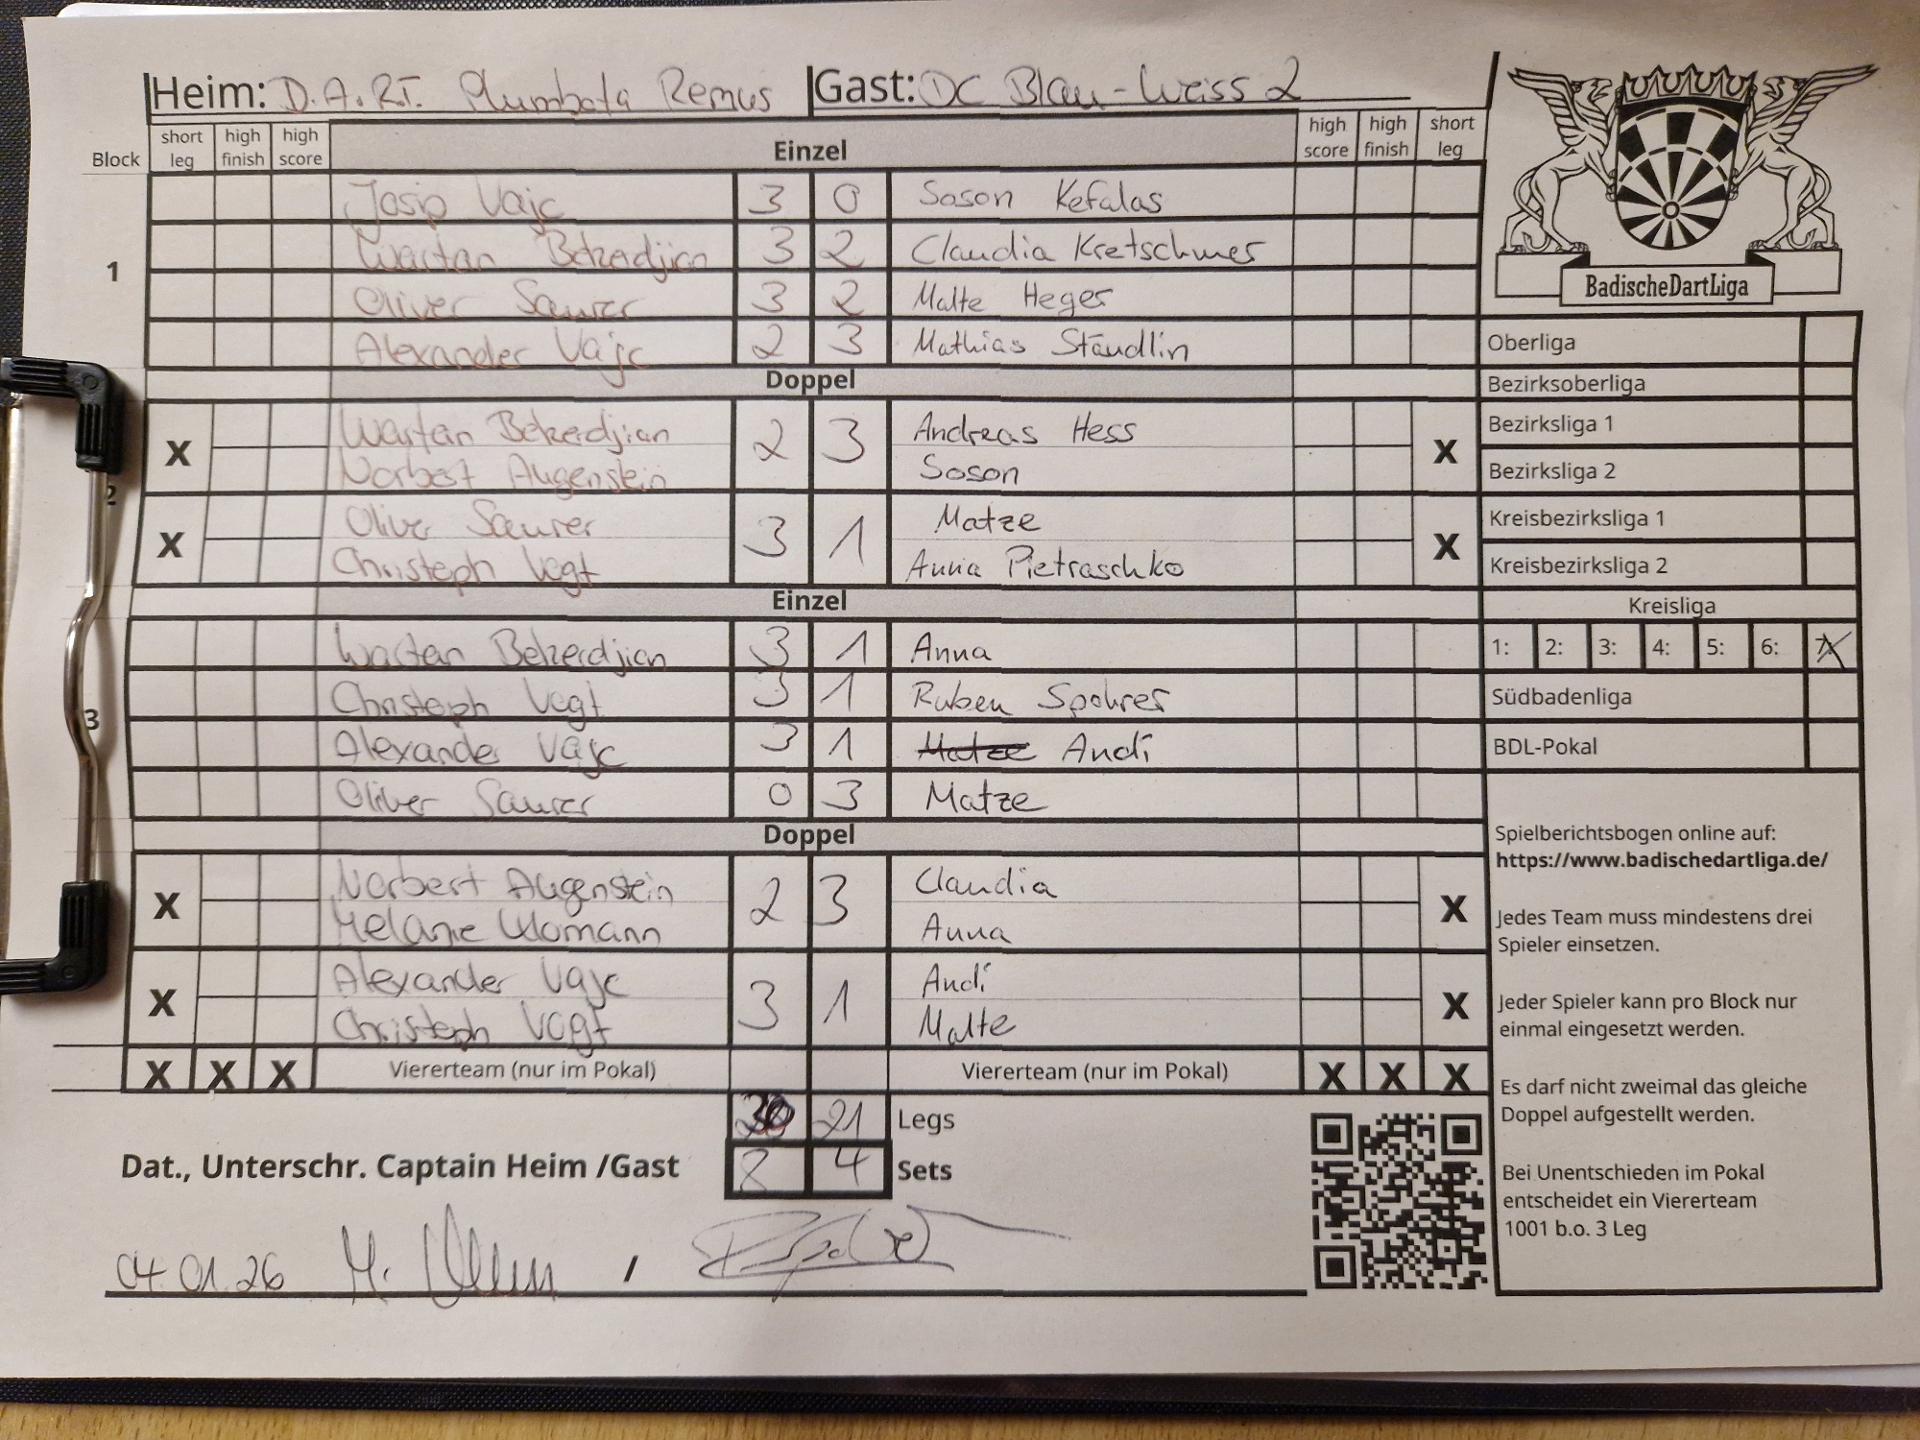 Heim: D.A.R.T. Plumbata Remus Gast: DC Blau-Weiss 2
Block short leg high finish high score Einzel high score high finish short leg
1
Josip Vajc 3 0 Soson Kefalas
Wartan Bekerdjian 3 2 Claudia Kretschmer
Oliver Saurer 3 2 Malte Heger
Alexander Vajc 2 3 Mathias Ständlin
Doppel
2
X Wartan Bekerdjian 2 3 Andreas Hess X
Norbert Augenstein Soson
X Oliver Saurer 3 1 Matze X
Christoph Vogt Anna Pietraschko
Einzel
3
Wartan Bekerdjian 3 1 Anna
Christoph Vogt 3 1 Ruben Spohrer
Alexander Vajc 3 1 Matze Andi
Oliver Saurer 0 3 Matze
Doppel
X Norbert Augenstein 2 3 Claudia X
Melanie Anna
X Alexander Vajc 3 1 Andi X
Christoph Vogt Malte
X X X Viererteam (nur im Pokal) Viererteam (nur im Pokal) X X X
21 Legs
8 4 Sets
Dat., Unterschr. Captain Heim /Gast
04.01.26 /
BadischeDartLiga
Oberliga
Bezirksoberliga
Bezirksliga 1
Bezirksliga 2
Kreisbezirksliga 1
Kreisbezirksliga 2
Kreisliga
1: 2: 3: 4: 5: 6: 7 X
Südbadenliga
BDL-Pokal
Spielberichtsbogen online auf:
https://www.badischedartliga.de/
Jedes Team muss mindestens drei
Spieler einsetzen.
Jeder Spieler kann pro Block nur
einmal eingesetzt werden.
Es darf nicht zweimal das gleiche
Doppel aufgestellt werden.
Bei Unentschieden im Pokal
entscheidet ein Viererteam
1001 b.o. 3 Leg